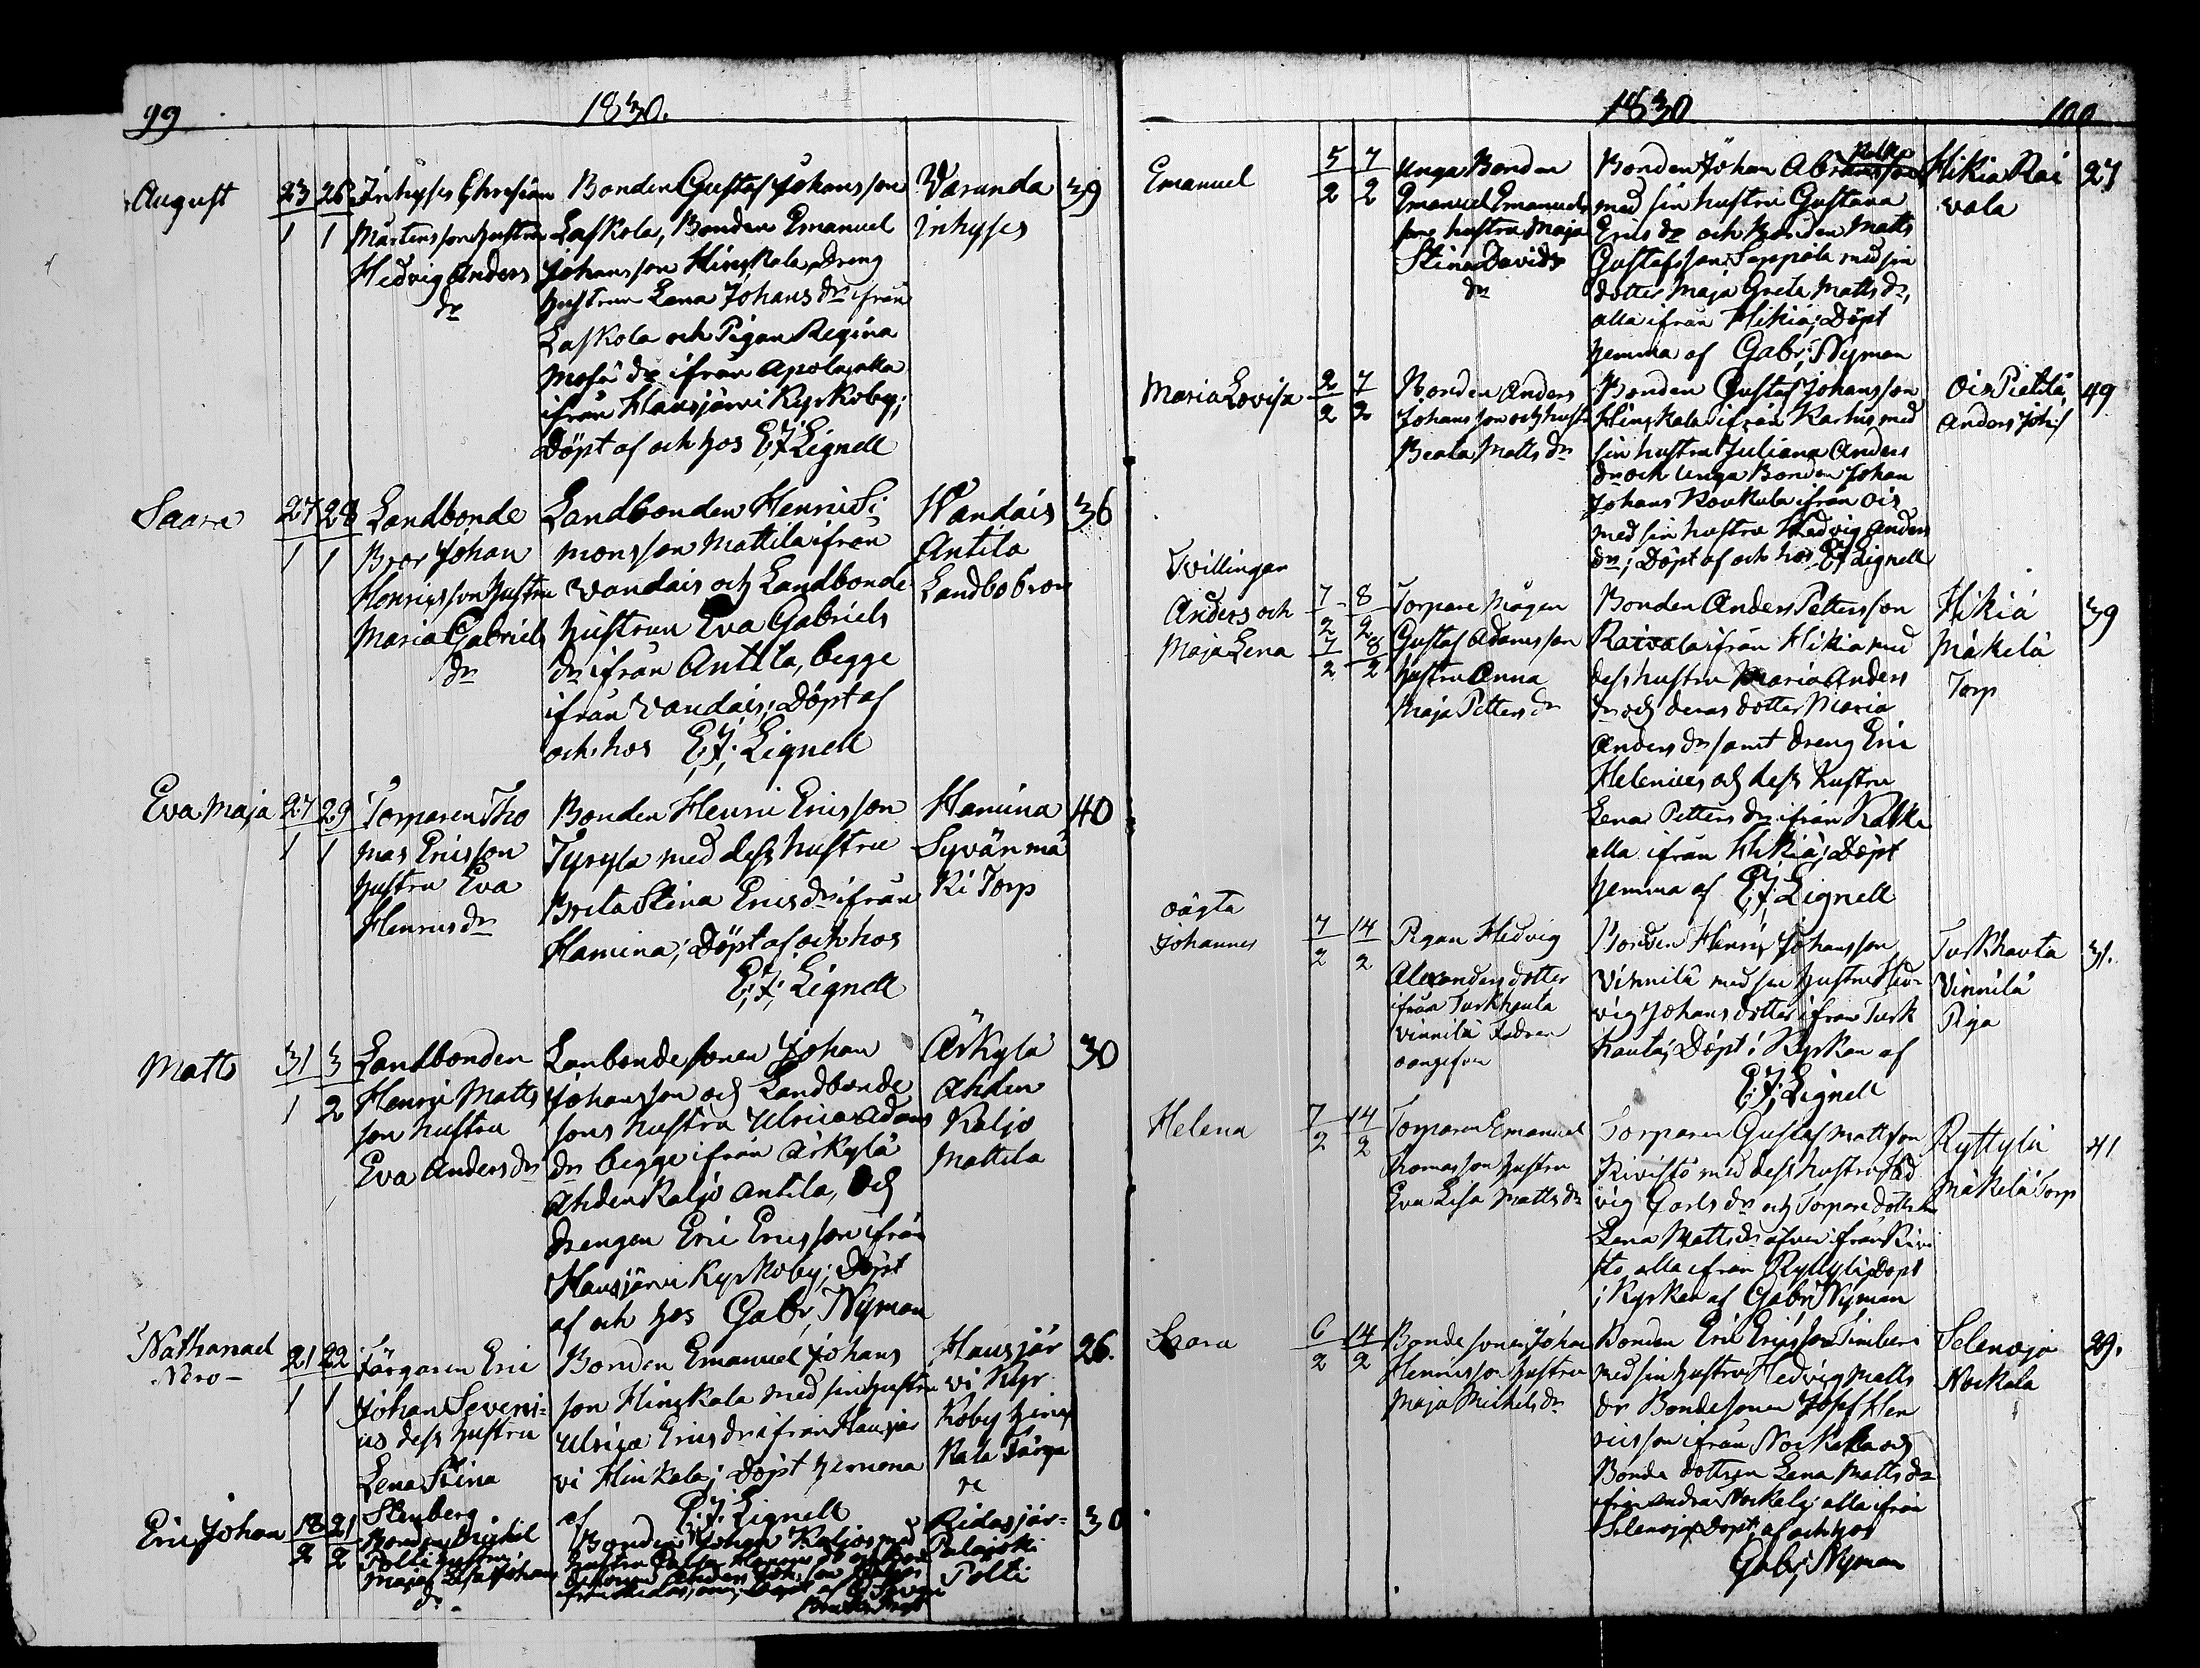 99
1830.
August 23/1 26/1 Inhyses Chresian
Mårtensson hustru
Hedvig Anders
dr
Bonden Gustaf Johansson
Laskola, Bonden Emanuel
Johansson Hinskala, Dreng
hustrun Lena Johans dr ifrån
Laskola och Pigan Regina
Mosis dr ifrån Apola, alla
ifrån Hausjärvi Kyrkoby;
Döpt af och hos E; J; Lignell
Varunda
inhyses
39
Saara 27/1 28/1 Landbonde
Bror Johan
Henricsson hustru
Maria Gabriels
dr
Landbonden Henric Si
monsson Mattila ifrån
Vandais och Landbonde
hustrun Eva Gabriels
dr ifrån Antila, begge
ifrån Vandais; Döpt af
och hos E; J; Lignell
Wandais
Antila
Landbobron
36
Eva Maja 27/1 29/1 Torparen Tho
mas Ericsson
hustru Eva
Henrics dr
Bonden Henric Ericsson
Tyryla med dess hustru
Brita Stina Erics dr ifrån
Hamina; Döpt af och hos
E; J; Lignell
Hamina
Syvänmä
ki Torp
40
Matts 31/1 3/2 Landbonden
Henric Matts
son hustru
Eva Anders dr
Lanbondesonen Johan
Johansson och Landbonde
sons hustru Ulrica Adams
dr begge ifrån Ärkylä
Ahdenkaljo Antila, och
drengen Eric Ericsson ifrån
Hausjärvi Kyrkoby; Döpt
af och hos Gabr; Nyman
Ärkylä
Ahden
Kaljo
Mattila
30
Nathanael
Nero 21/1 22/1 Färgaren Eric
Johan Severi=
us dess hustru
Lena Stina
Stenberg
Bonden Emanuel Johans
son Hinskala med sin hustru
Ulrica Erics dr ifrån Hausjär
vi Hinskala; Döpt hemma
af E; J; Lignell
Hausjär
vi Kyr
koby hins
kala Färga
re
26.
Eric Johan 18/2 21/2 Bonden Michel
Polli hustru
Maja Lisa Johans
dr
Bonden Johan Kaljos med
hustru
Ridasjär=
Palojoki
Polli
30
1830
100
Emanuel 5/2 7/2 Unga Bonden
Emanuel Emanuels
sons hustru Maja
Stina Davids
dr
Bonden Johan Abramsson
med sin hustru Gustava
Erics dr och Bonden Matts
Gustafsson Seppälä med sin
dotter Maja Greta Matts dr,
alla ifrån Hikiä; Döpt
hemma af Gabr; Nyman
Hikia Rai
vala
27
Maria Lovisa 2/2 7/2 Bonden Anders
Johansson och hustr
Beata Matts dr
Bonden Gustaf Johansson
Hinskala ifrån Karhis med
sin hustru Juliana Anders
dr och Unga Bonden Johan
Johans Koukula ifrån Ois
med sin hustru Hedvig Anders
dr; Döpt af och hos E; J; Lignell
Ois Pietilä,
Anders Joh:s
49
Tvillingar
Anders och 7/2 8/2
Maja Lena 7/2 8/2
Torpare Mågen
Gustaf Adamsson
hustru Anna
Maja Petters dr
Bonden Anders Pettersson
Raivala ifrån Hikia med
dess hustru Maria Anders
dr och deras dotter Maria
Anders dr samt dreng Eric
Helenius och dess hustru
Lena Petters dr ifrån Kalkki
alla ifrån Hikiä; Döpt
hemma af E; J; Lignell
Hikiä
Mäkelä
Torp
39
oägta
Johannes 7/2 14/2 Pigan Hedvig
Alexanders dotter
ifrån Turkhauta
Vinnilä Fadren
oangifven
Bonden Henric Johansson
Vinnilä med sin hustru Hed=
vig Johans dotter ifrån Turk
hauta; Döpt i Kyrkan af
E; J; Lignell
Turkhauta
Vinnilä
Piga
31.
Helena 7/2 14/2 Torparen Emanuel
Thomasson hustru
Eva Lisa Matts dr
Torparen Gustaf Mattsson
Kivistö med dess hustru Hed
vig Carls dr och Torpare dottren
Lena Matts dr äfven ifrån Kivi
stö, alla ifrån Ryttylä; Döpt
i Kyrkan af Gabr; Nyman
Ryttylä
Mäkelä Torp
41
Saara 6/2 14/2 Bondesonen Johan
Henricsson hustru
Maja Michels dr
Bonden Eric Ericsson Timberi
med sin hustru Hedvig Matts
dr Bondesonen Josef Hen
ricsson ifrån Nockala och
Bonde dottren Lena Matts dr
ifrån andra Nockala; alla ifrån
Selenoja; Döpt af och hos
Gabr; Nyman
Selenoja
Nockala
29.